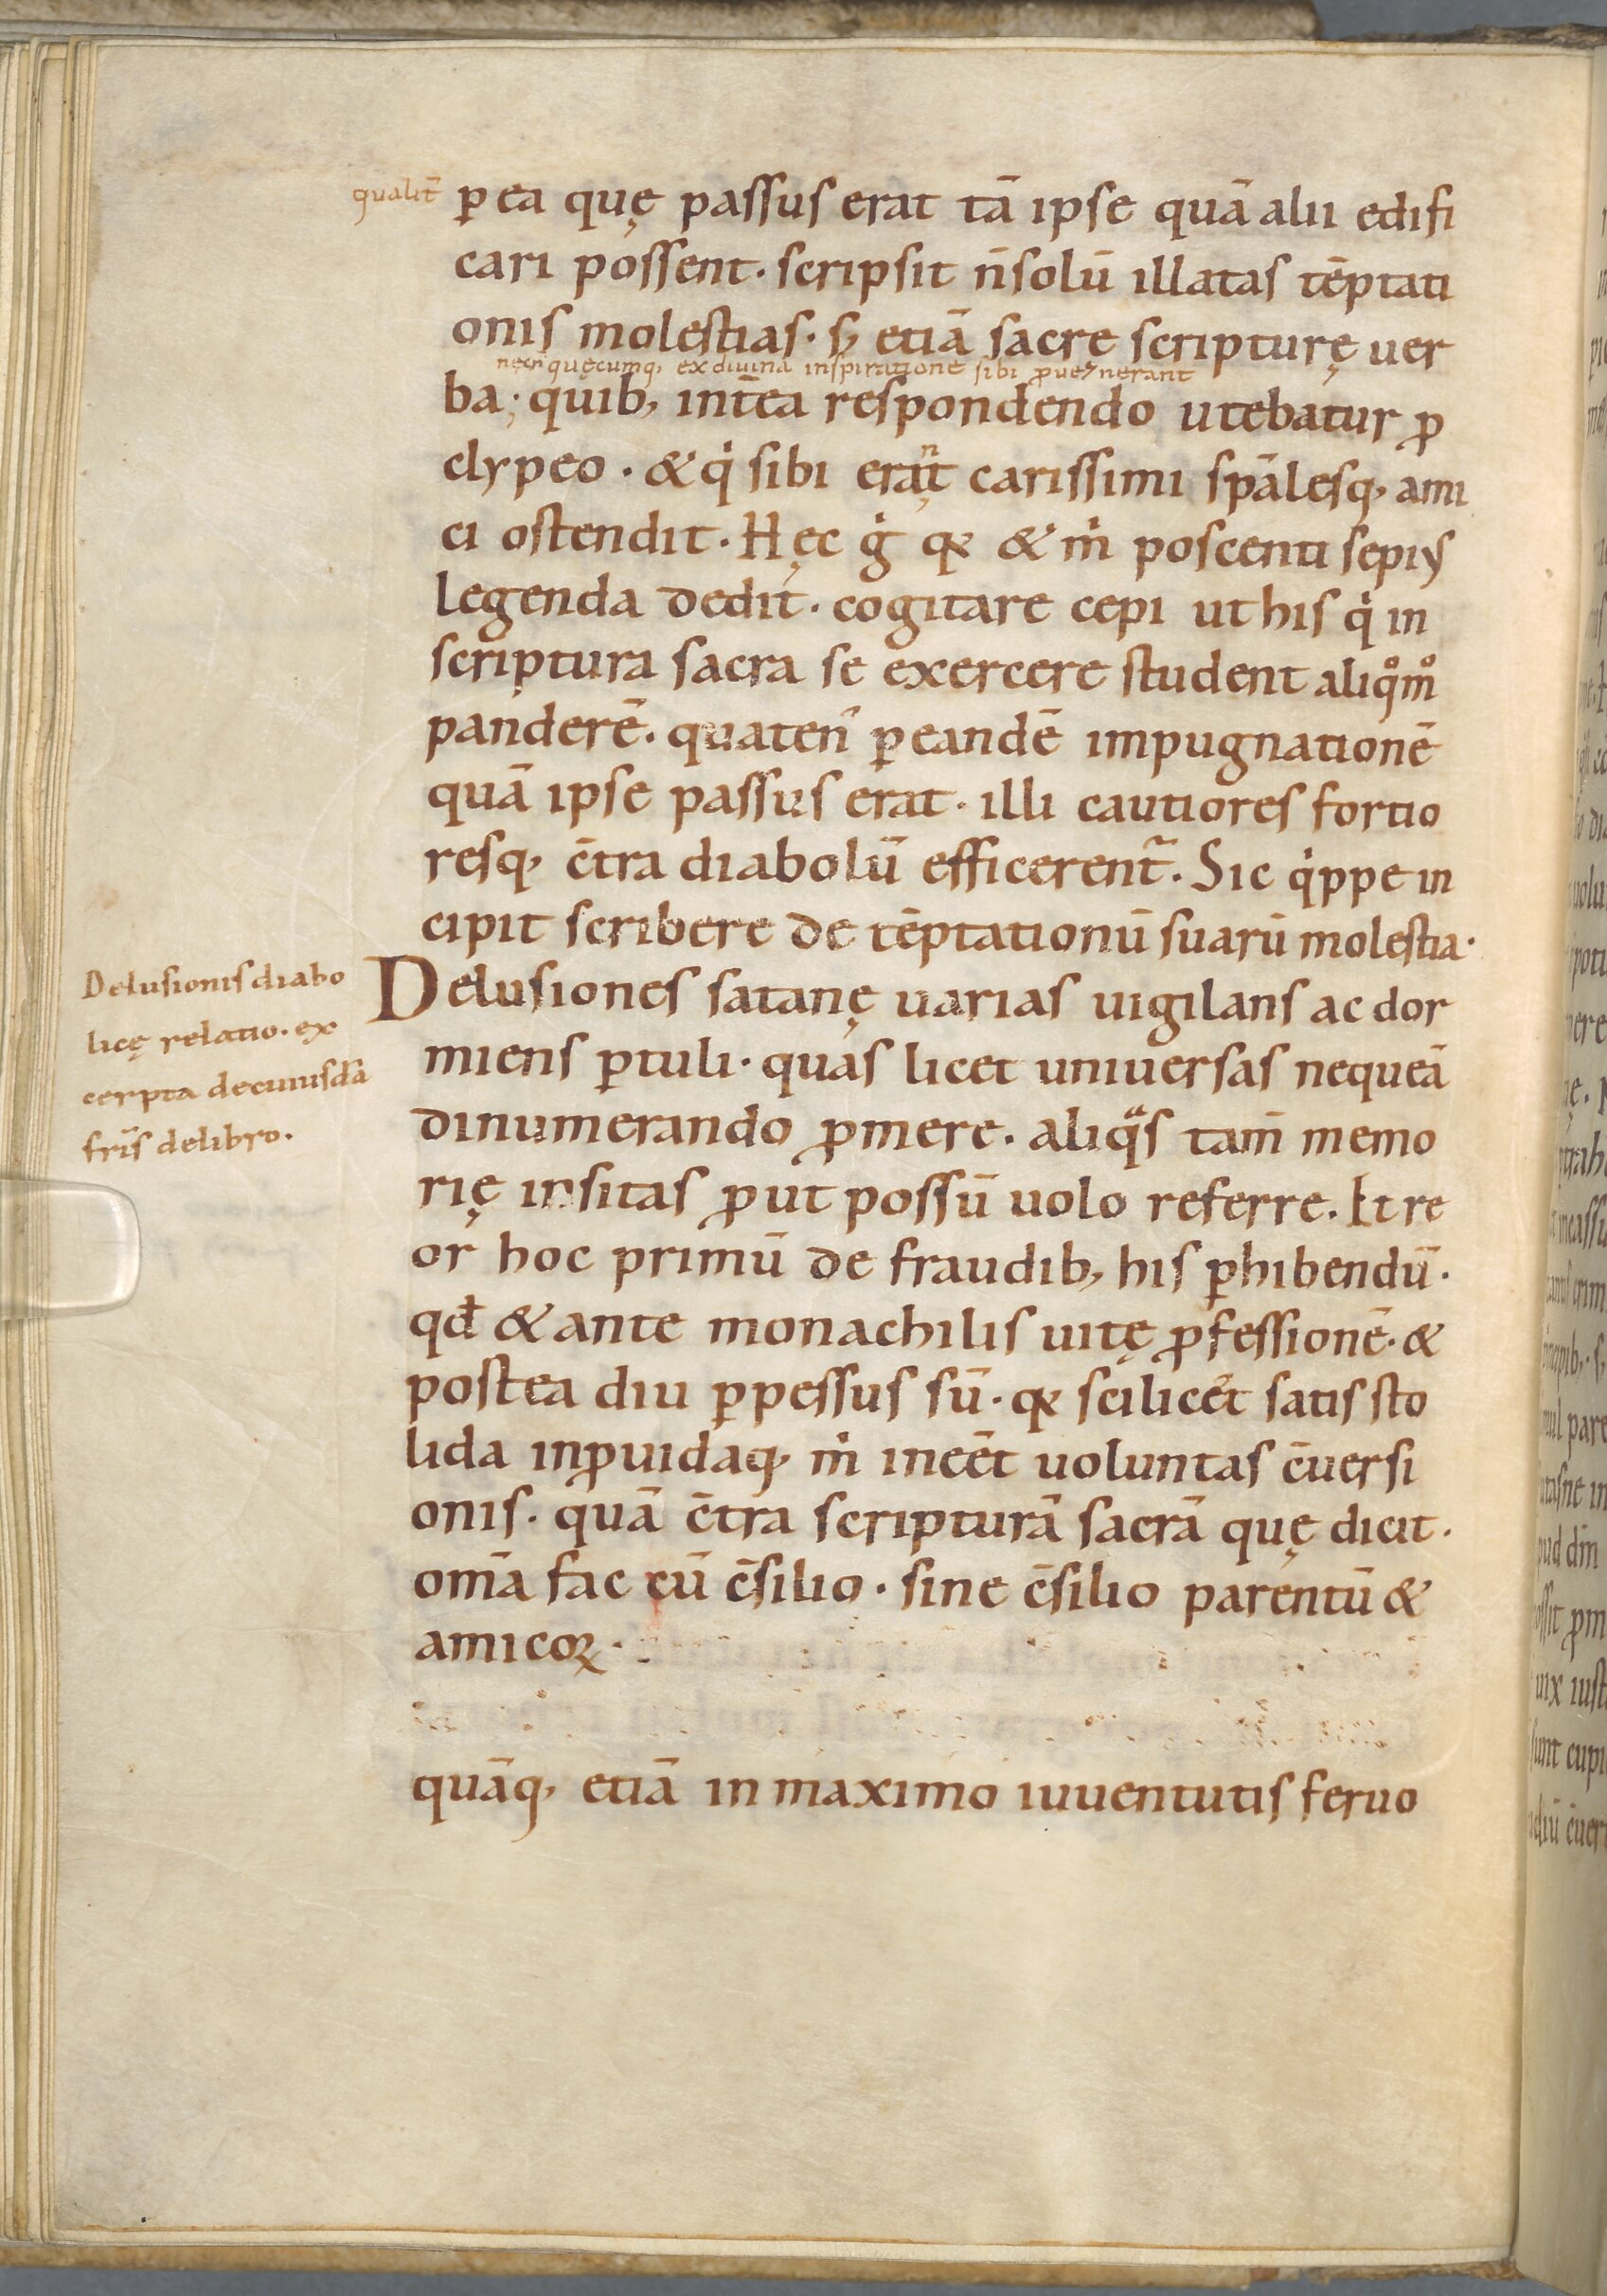 qualit̄ ꝑ ea quę passus erat tā ipse quā alii edifi
cari possent. scripsit n̄ solū illatas tēptati
onis molestias. s; etiā sacrę scripturę uer
necn̄ quęcumq; ex diuina inspiratione sibi ꝓuenerant
ba; quib; int̄ea respondendo utebatur ꝓ
clypeo. & q̇ sibi erant carissimi spāles q; ami
ci ostendit. Hęc g̊ qꝫ & m̊ poscenti sepiꝰ
legenda dedit. cogitare cepi ut his q̇ in
scriptura sacra se exercere student aliq̊m̊
panderē. quaten̄ ꝑ eandē impugnationē
quā ipse passus erat. illi cautiores fortio
resq; c̄tra diabolū efficerent᷑. Sic q̇ppe in
cipit scribere de tēptationū suarū molestia.
Delusionis diabo
licę relatio. ex
cerpta de cuiusdā
fr̄is de libro.
Delusiones satanę uarias uigilans ac dor
miens ꝑtuli. quas licet uniuersas nequeā
dinumerando ꝓmere. aliqᵃs tam̄ memo
rię insitas ꝓut possū uolo referre. Et re
or hoc primū de fraudib; his ꝑhibendū.
qđ & ante monachilis uitę ꝓfessionē. &
postea diu ꝑpessus sū. qꝫ scilicet satis sto
lida inꝓuidaq; m̊ ineēt uoluntas c̄uersi
onis. quā c̄tra scripturā sacrā quę dicit.
om̄a fac cū c̄silio. sine c̄silio parentū &
amicoꝝ.
quāq; etiā in maximo iuuentutis feruo